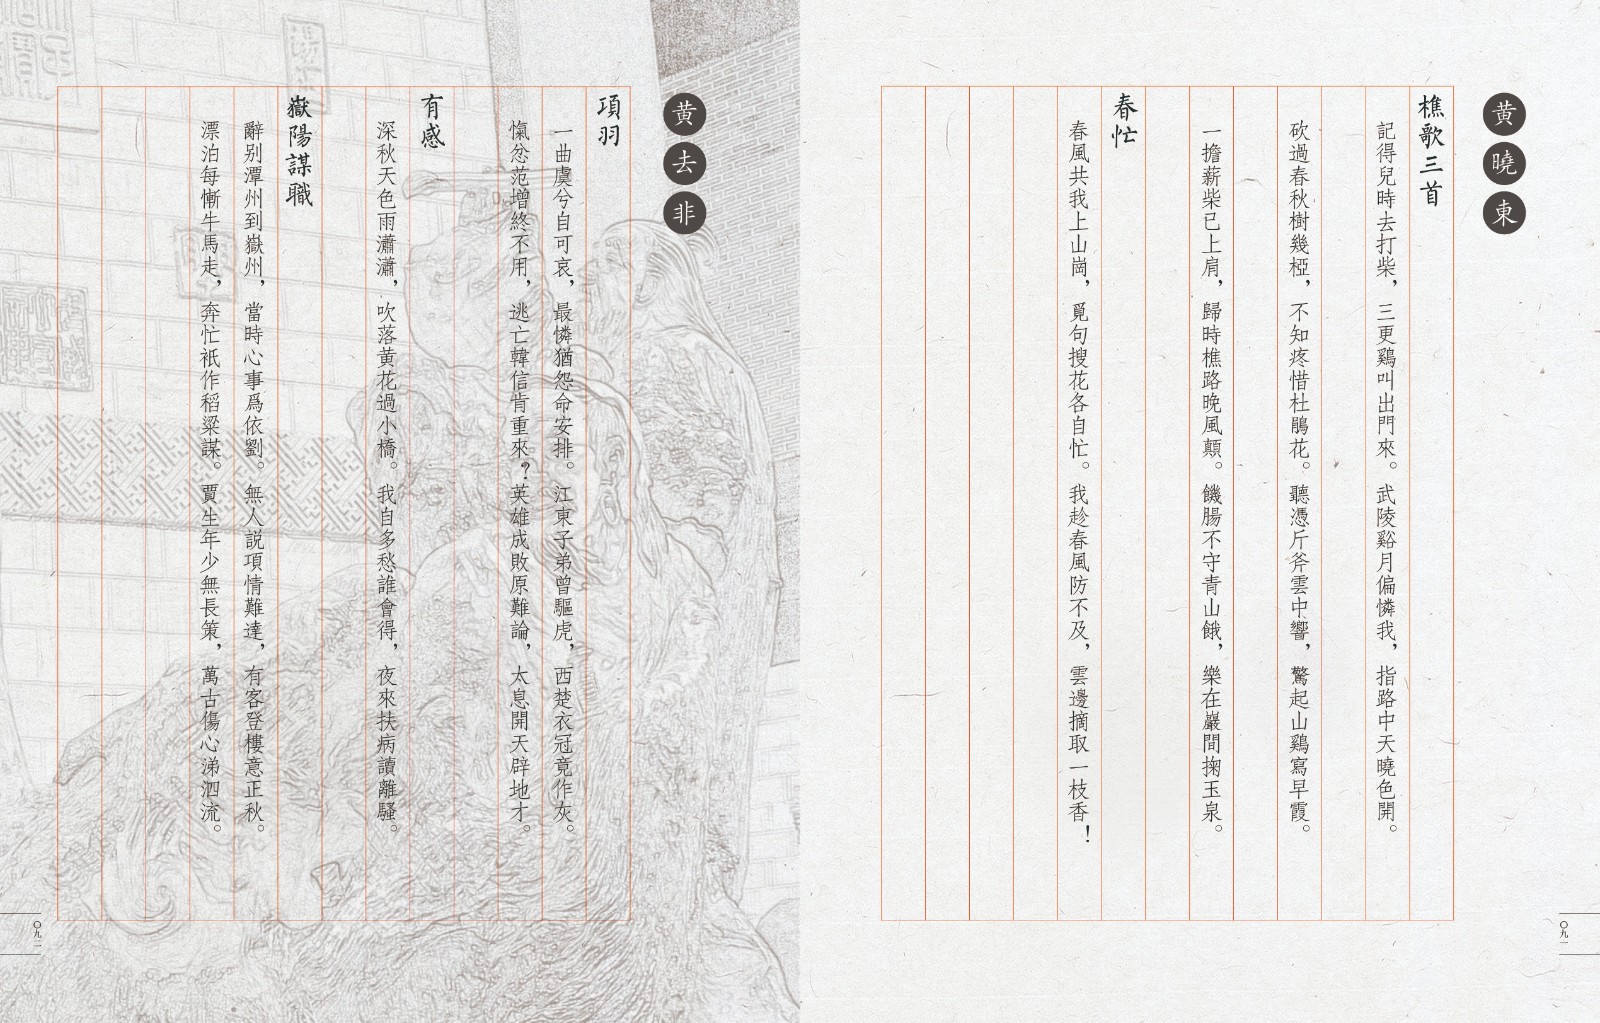 黄曉東
樵歌三首
記得兒時去打柴，三更鷄叫出門來。武陵谿月偏憐我，指路中天曉色開。
砍過春秋樹幾椏，不知疼惜杜鵑花。聽憑斤斧雲中響，驚起山鷄寫早霞。
一擔薪柴已上肩，歸時樵路晚風顛。饑腸不守青山餓，樂在巖間掬玉泉。
春忙
春風共我上山崗，覓句搜花各自忙。我趁春風防不及，雲邊摘取一枝香！
〇九一
黄去非
項羽
一曲虞兮自可哀，最憐猶怨命安排。江東子弟曾驅虎，西楚衣冠竟作灰。
愾忿范增終不用，逃亡韓信肯重來？英雄成敗原難論，太息開天辟地才。
有感
深秋天色雨瀟瀟，吹落黄花過小橋。我自多愁誰會得，夜來扶病讀離騷。
嶽陽謀職
辭别潭州到嶽州，當時心事爲依劉。無人説項情難達，有客登樓意正秋。
漂泊每慚牛馬走，奔忙祇作稻粱謀。賈生年少無長策，萬古傷心涕泗流。
〇九二